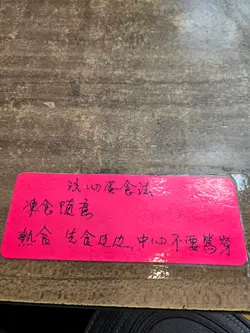 流心蛋食法
凍食隨意
熱食 先食皮边,中心不要篤穿